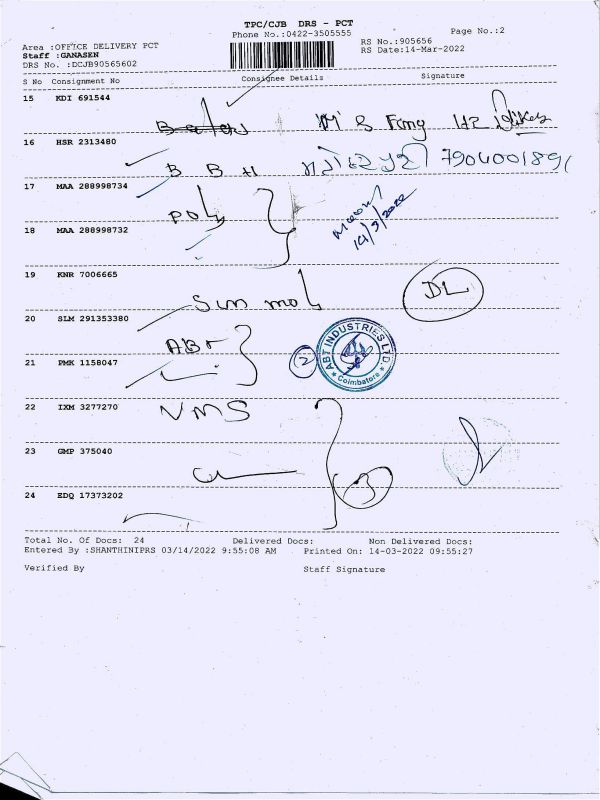 TPC/CJB DRS - PCT
Phone No.:0422-3505555
Page No.:2
Area :OFFICE DELIVERY PCT
RS No.:905656
Staff :GANASEN
RS Date:14-Mar-2022
DRS No. :DCJB90565602
S No Consignment No Consignee Details Signature
15 KDI 691544
16 HSR 2313480
B B H 7904001891
17 MAA 288998734
18 MAA 288998732
14/3/2022
19 KNR 7006665
Sun mol
DL
20 SLM 291353380
ABT
2
ABT INDUSTRIES LTD
Coimbatore
21 PMK 1158047
22 IXM 3277270
VMS
23 GMP 375040
3
24 EDQ 17373202
Total No. Of Docs: 24 Delivered Docs: Non Delivered Docs:
Entered By :SHANTHINIPRS 03/14/2022 9:55:08 AM Printed On: 14-03-2022 09:55:27
Verified By Staff Signature